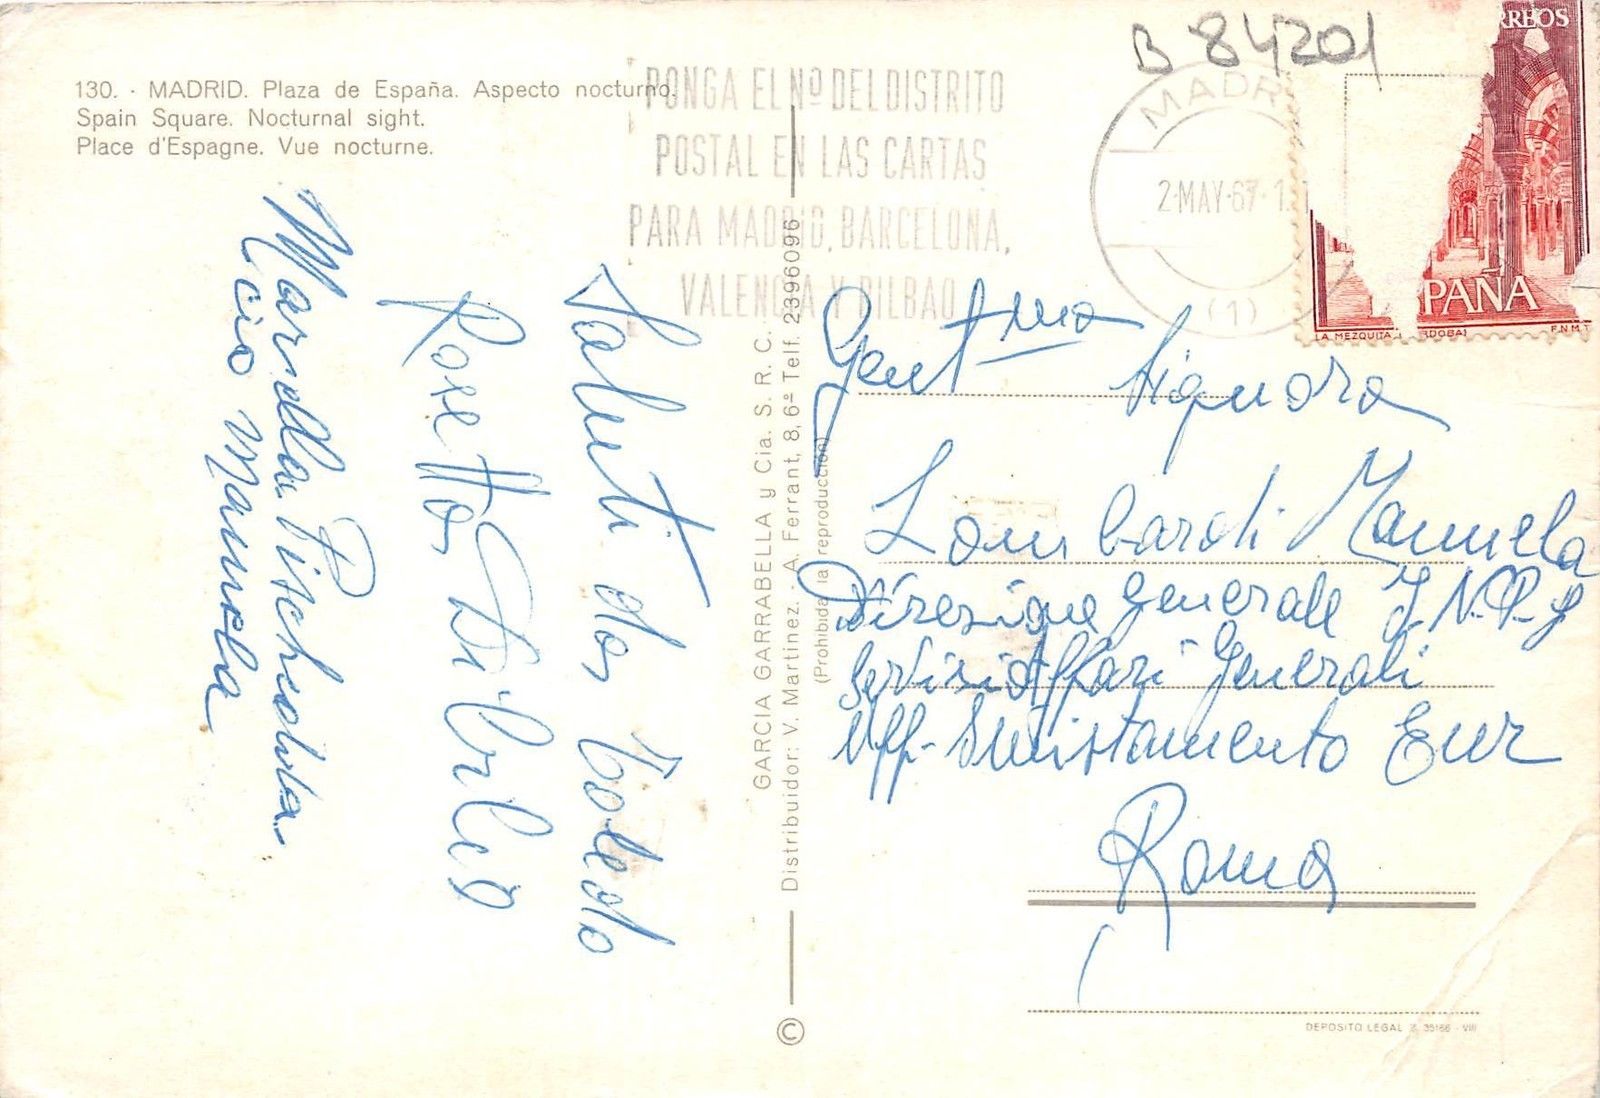 B 84201
130. - MADRID. Plaza de España. Aspecto nocturno.
Spain Square. Nocturnal sight.
Place d'Espagne. Vue nocturne.
PONGA EL Nº DEL DISTRITO
POSTAL EN LAS CARTAS
PARA MADRID, BARCELONA,
VALENCIA Y BILBAO
MADR
2-MAY-67
(1)
RREOS
PAÑA
LA MEZQUITA
RDOBA)
F.N.M.T.
Saluti da Toledo
Rosetta Di
Marella
Ciao Manuela
GARCIA GARRABELLA y Cia. S. R. C.
Distribuidor: V. Martinez. - A. Ferrant, 8, 6º Telf. 2396096
(Prohibida la reproducción)
©
Gent.ma Signora
Lombardi Manuela
Direzione Generale I.N.P.S
Servizi Affari Generali
Uff. Smistamento Eur
Roma
DEPOSITO LEGAL B. 35166 - VIII